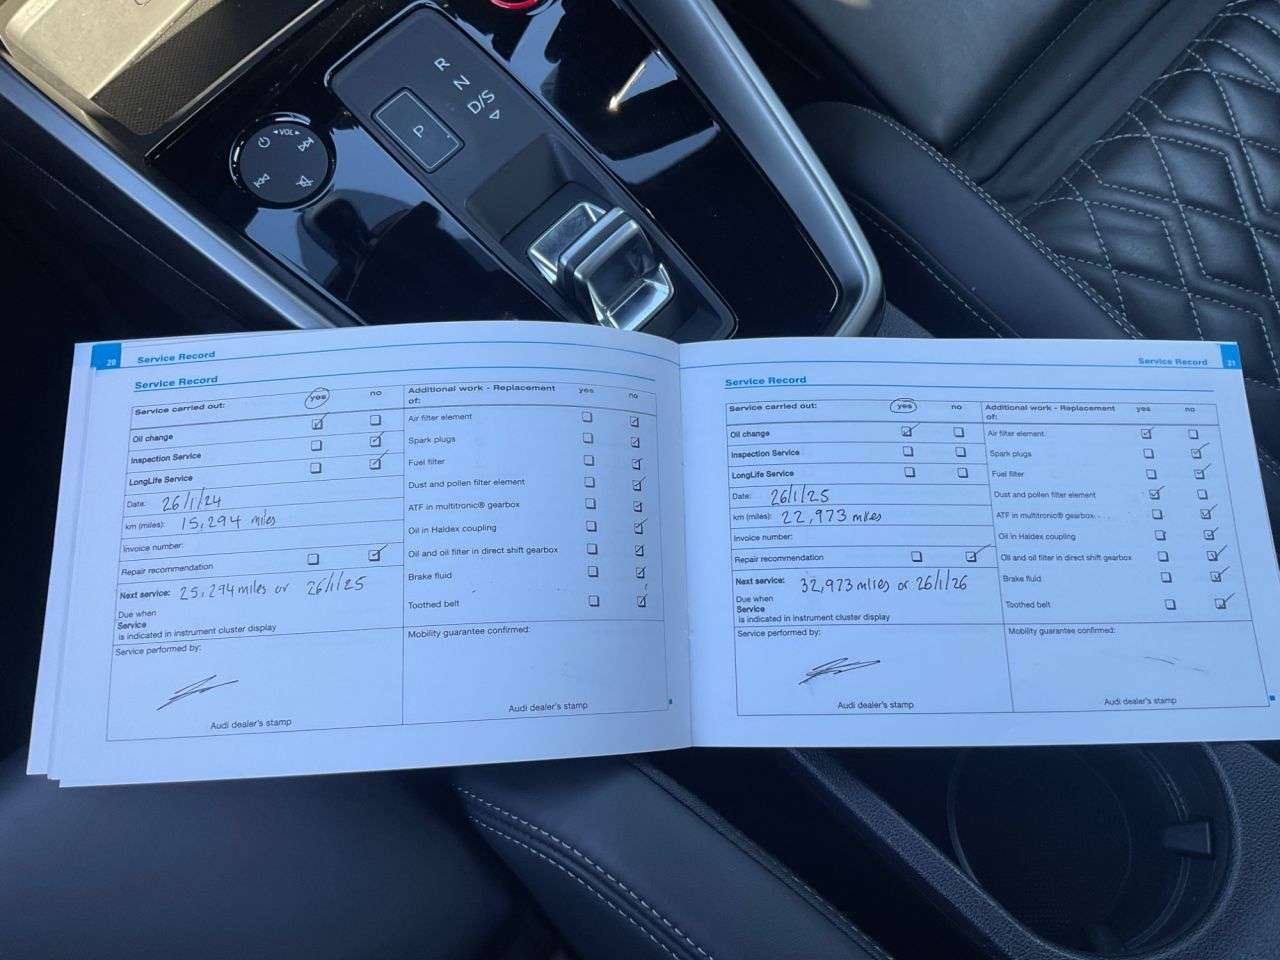 R
N
D/S
P
VOL
20 Service Record
Service Record
Service carried out: yes no
Oil change
Inspection Service
LongLife Service
Date: 26/1/24
km (miles): 15,294 miles
Invoice number:
Repair recommendation
Next service: 25,294 miles or 26/1/25
Due when
Service
is indicated in instrument cluster display
Service performed by:
Audi dealer's stamp
Additional work - Replacement of: yes no
Air filter element
Spark plugs
Fuel filter
Dust and pollen filter element
ATF in multitronic® gearbox
Oil in Haldex coupling
Oil and oil filter in direct shift gearbox
Brake fluid
Toothed belt
Mobility guarantee confirmed:
Audi dealer's stamp
Service Record 21
Service Record
Service carried out: yes no
Oil change
Inspection Service
LongLife Service
Date: 26/1/25
km (miles): 22,973 miles
Invoice number:
Repair recommendation
Next service: 32,973 miles or 26/1/26
Due when
Service
is indicated in instrument cluster display
Service performed by:
Audi dealer's stamp
Additional work - Replacement of: yes no
Air filter element
Spark plugs
Fuel filter
Dust and pollen filter element
ATF in multitronic® gearbox
Oil in Haldex coupling
Oil and oil filter in direct shift gearbox
Brake fluid
Toothed belt
Mobility guarantee confirmed:
Audi dealer's stamp